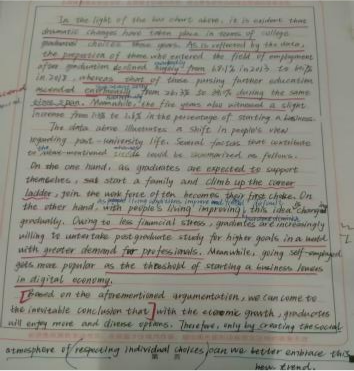 In the light of the bar chart above, it is evident that
dramatic changes have taken place in terms of college
graduates' choices these years. As is reflected by the data,
the proportion of those who entered the field of employment
after graduation declined from 68.1% in 2013 to 60%
in 2018, whereas that of those pursing further education
ascended from 26.3% to 34% during the same
time span. Meanwhile, the five years also witnessed a slight
increase from to 2.6% in the percentage of starting a business.
The data above illustrates a shift in people's view
regarding post-university life. Several factors that contribute
to above-mentioned could be summarized as follows.
On the one hand, as graduates are expected to support
themselves, start a family and climb up the career
ladder, join the work force often becomes their first choice. On
the other hand, with people's living improving, this idea changed
gradually. Owing to less financial stress, graduates are increasingly
willing to undertake postgraduate study for higher goals in a world
with greater demand for professionals. Meanwhile, going self-employed
gets more popular as the threshold of starting a business lowers
in digital economy.
Based on the aforementioned argumentation, we can come to
the inevitable conclusion that with the economic growth, graduates
will enjoy more and diverse options. Therefore, only by creating the social
atmosphere of respecting individual choices, can we better embrace this
new trend.